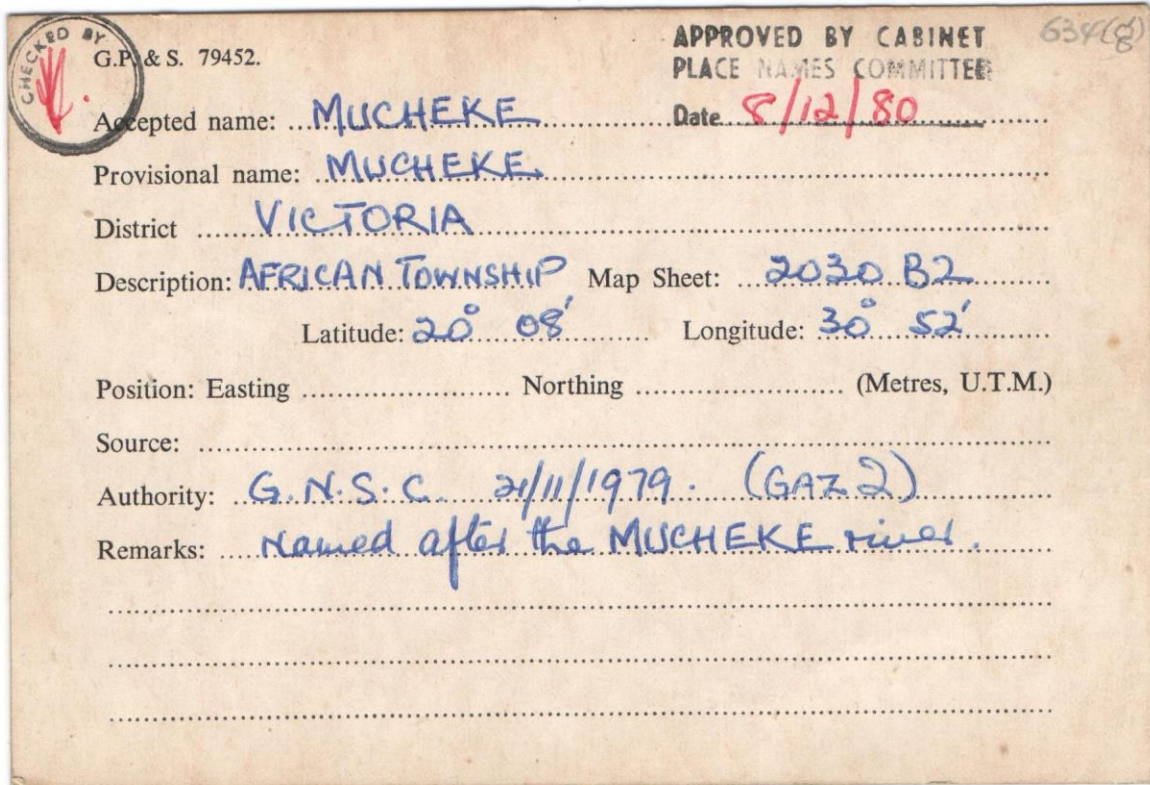 CHECKED BY
G.P. & S. 79452.
APPROVED BY CABINET
PLACE NAMES COMMITTEE
Date 8/12/80
Accepted name: MUCHEKE
Provisional name: MUCHEKE.
District VICTORIA
Description: AFRICAN TOWNSHIP Map Sheet: 2030 B2
Latitude: 20° 08' Longitude: 30° 52'
Position: Easting Northing (Metres, U.T.M.)
Source:
Authority: G.N.S.C. 21/11/1979. (GAZ 2)
Remarks: Named after the MUCHEKE river.